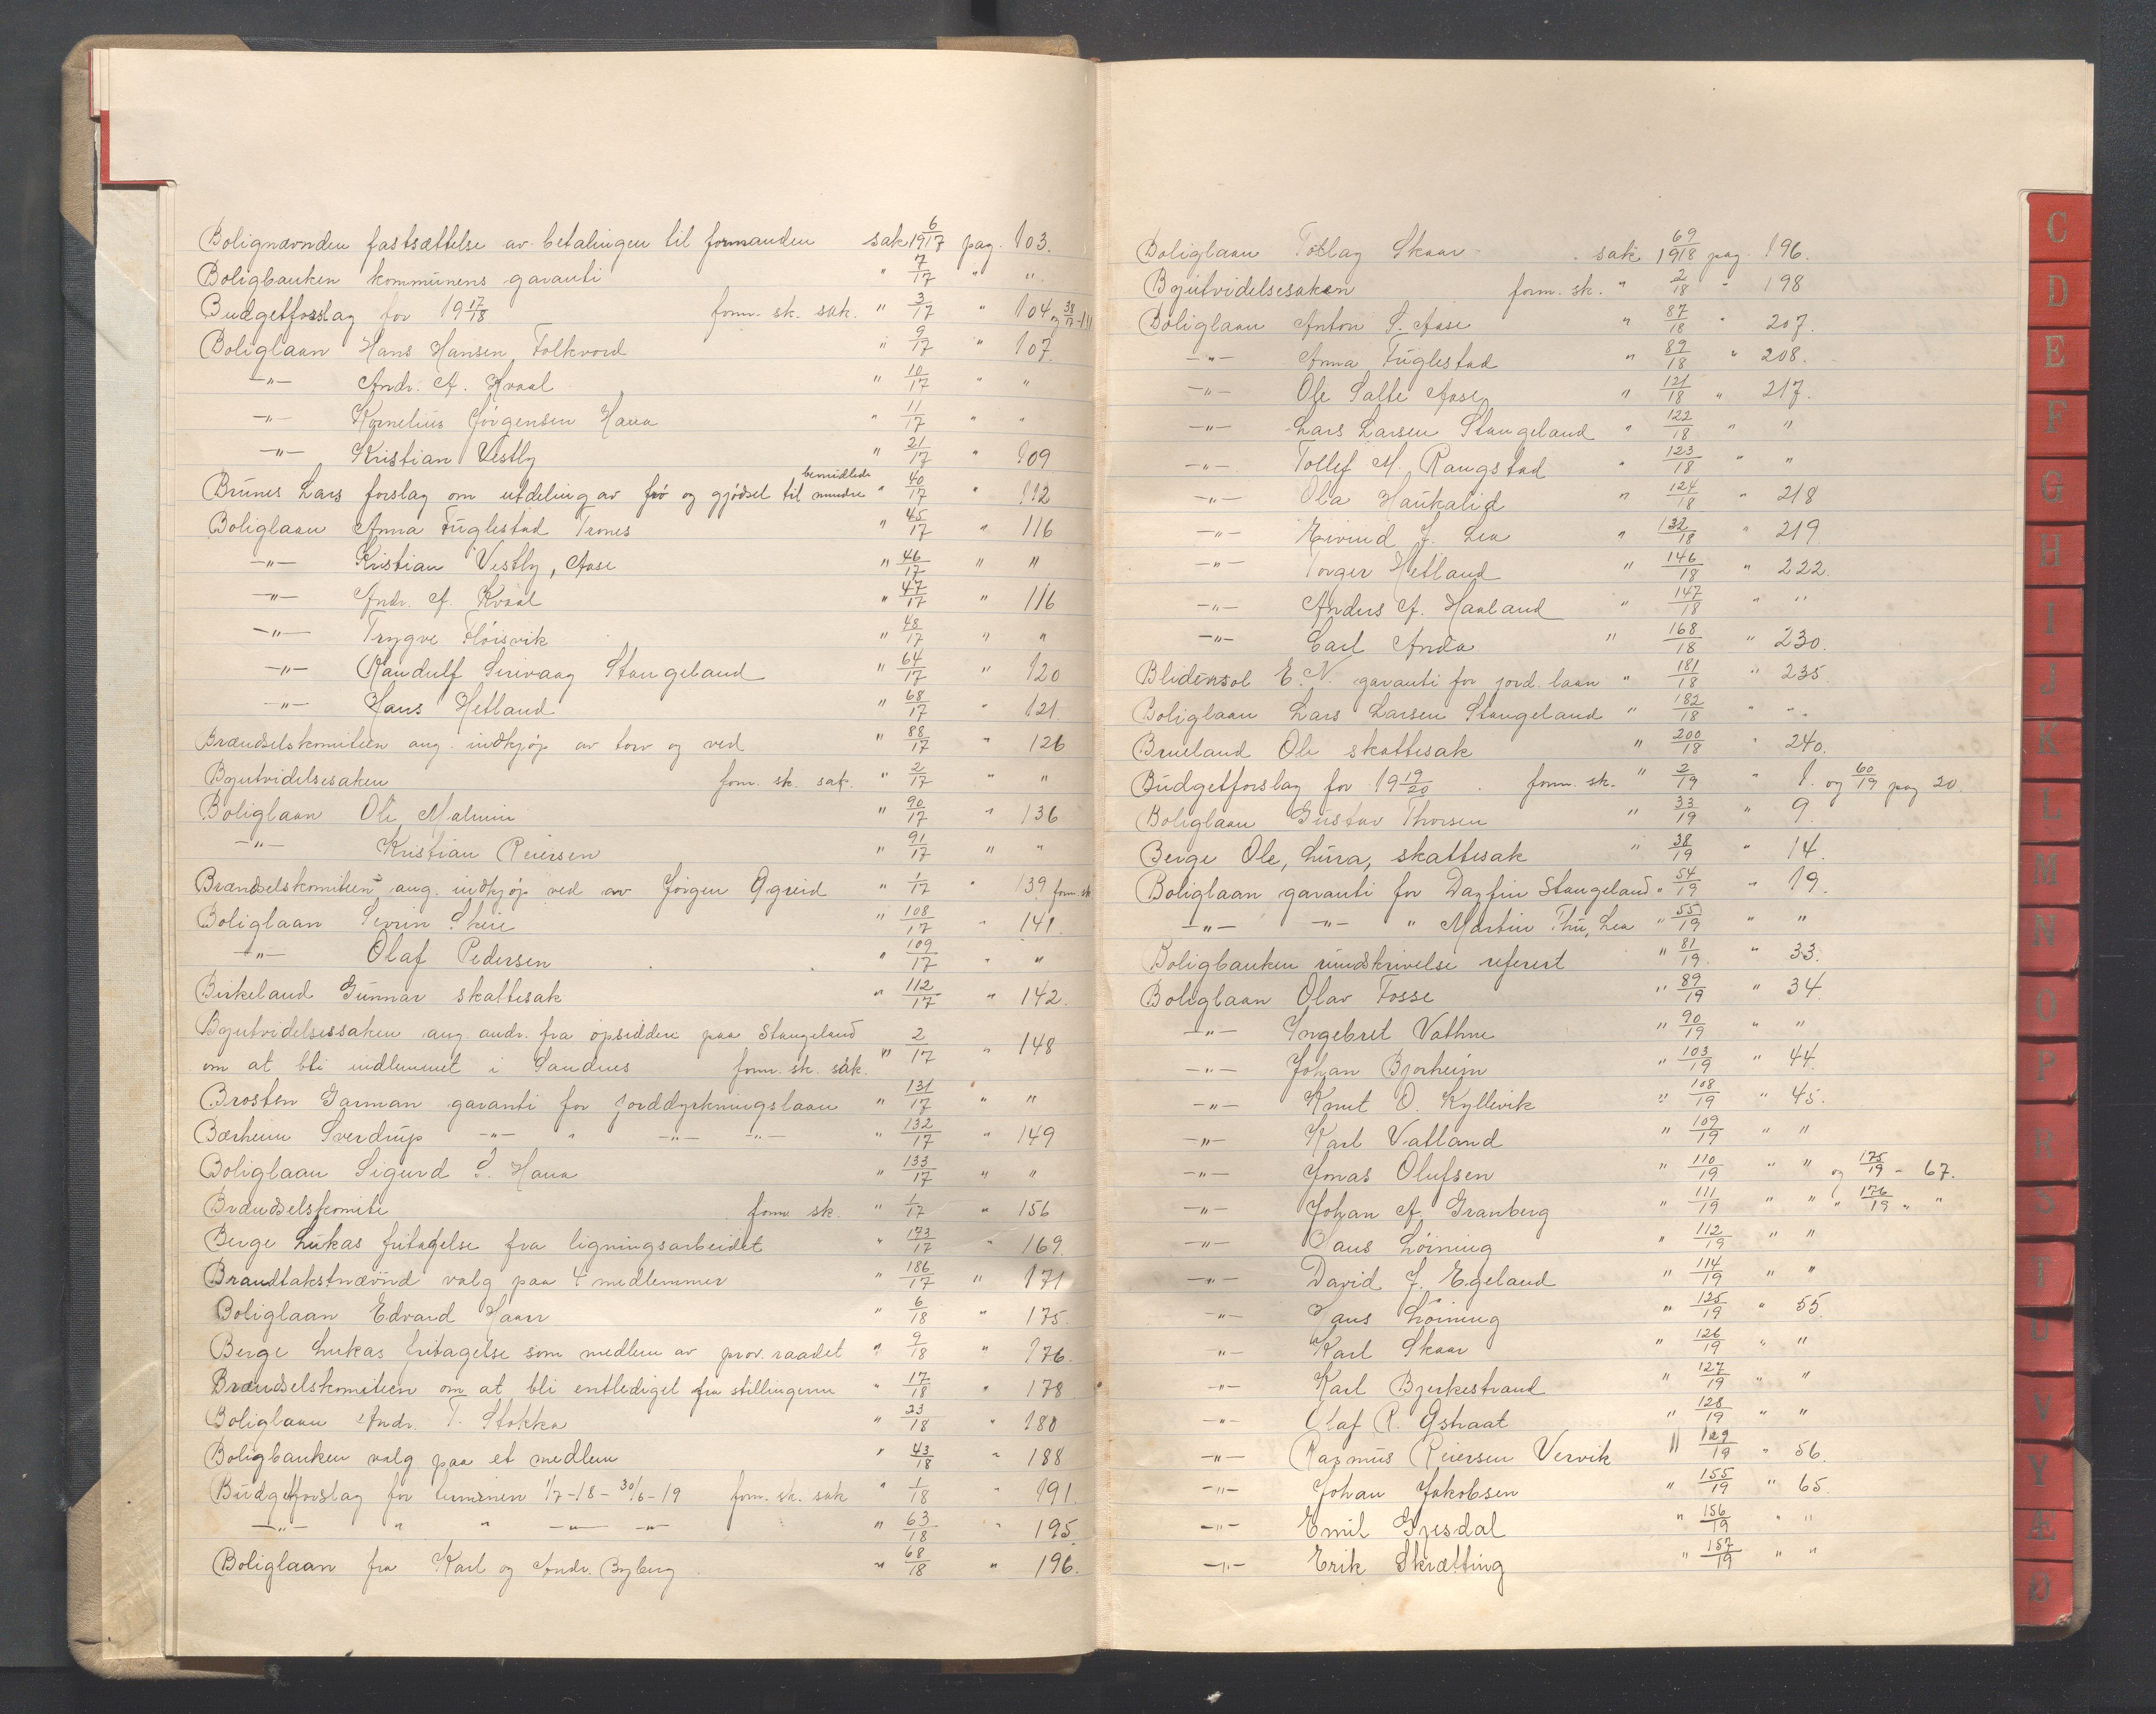 Bolignævnden fastsættelse av betalingen til formanden sak 6/1917 pag. 103.
Boligbanken kommunens garanti " 7/17 " "
Budgetforslag for 19 17/18 form. sk. sak. " 3/17 " 104 og 38/17 - 111
Boliglaan Hans Hansen, Folkvord " 9/17 " 107.
—"— Andr. A. Kvaal " 10/17 " "
—"— Kornelius Jörgensen Hana " 11/17 " "
—"— Kristian Vestly " 21/17 " 109
bemidlede
Brunes Lars forslag om utdeling av frö og gjödsel til mindre " 40/17 " 112
Boliglaan Anna Fuglestad Trones " 45/17 " 116
—"— Kristian Vestly, Aase " 46/17 " "
—"— Andr. A. Kvaal " 47/17 " 116
—"— Trygve Flöisvik " 48/17 " "
—"— Randulf Sirivaag Stangeland " 64/17 " 120
—"— Hans Hetland " 68/17 " 121
Brændselskomiteen ang. indkjöp av torv og ved " 88/17 " 126
Byutvidelsesaken form. sk. sak. " 2/17 " "
Boliglaan Ole Malmin " 90/17 " 136
—"— Kristian Reiersen " 91/17 " "
Brændselskomiteen ang. indkjöp ved av Jörgen Ogreid " 1/17 " 139 form. sk
Boliglaan Sevrin Skeie " 108/17 " 141
—"— Olaf Pedersen " 109/17 " "
Birkeland Gunnar skattesak " 112/17 " 142.
Byutvidelsessaken ang. andr. fra opsiddere paa Stangeland
om at bli indlemmet i Sandnes form. sk. sak. " 2/17 " 148
Brosten Garman garanti for jorddyrkningslaan " 131/17 " "
Bærheim Sverdrup —"— " —"— —"— " 132/17 " 149
Boliglaan Sigurd S. Hana " 133/17 " "
Brændselskomite form sk. " 1/17 " 156
Berge Lukas fritagelse fra ligningsarbeidet " 173/17 " 169.
Brandtakstnævnd valg paa 4 medlemmer " 186/17 " 171
Boliglaan Edvard Haarr " 6/18 " 175.
Berge Lukas fritagelse som medlem av prov. raadet " 9/18 " 176.
Brændselskomiteen om at bli entlediget fra stillingerne " 17/18 " 178
Boliglaan Andr. T. Stokka " 23/18 " 180
Boligbanken valg paa et medlem " 43/18 " 188
Budgetforslag for terminen 1/7-18 - 30/6-19 form. sk. sak " 1/18 " 191.
—"— " " —"— —"— " 63/18 " 195
Boliglaan fra Karl og Andr. Byberg " 68/18 " 196.
Boliglaan Tollag Skaar sak 69/1918 pag. 196.
Byutvidelsesaken form. sk. " 2/18 " 198
Boliglaan Anton S. Aase " 87/18 " 207.
—"— Anna Fuglestad " 89/18 " 208.
—"— Ole Salte Aase " 121/18 " 217.
—"— Lars Larsen Stangeland " 122/18 " "
—"— Tollef M. Rangstad " 123/18 " "
—"— Ola Haukalid " 124/18 " 218
—"— Eivind J. Lea " 132/18 " 219
—"— Torger Hetland " 146/18 " 222.
—"— Anders A. Haaland " 147/18 " "
—"— Carl Anda " 168/18 " 230.
Blidensol E. N. garanti for jord. laan " 181/18 " 235
Boliglaan Lars Larsen Stangeland " 182/18 " "
Brueland Ole skattesak " 200/18 " 240.
Budgetforslag for 19 19/20 form. sk. " 2/19 " 1. og 60/19 pag 20.
Boliglaan Gustav Thorsen " 33/19 " 9.
Berge Ole, Lura, skattesak " 38/19 " 14.
Boliglaan garanti for Dagfin Stangeland " 54/19 " 19.
—"— —"— " Martin Thu, Lea " 55/19 " "
Boligbanken rundskrivelse referert " 81/19 " 33.
Boliglaan Olav Fosse " 89/19 " 34.
—"— Ingebret Vathne " 90/19 " "
—"— Johan Bjorheim " 103/19 " 44.
—"— Knut O. Kyllevik " 108/19 " 45.
—"— Karl Vatland " 109/19 " "
—"— Jonas Olufsen " 110/19 " " og 175/19 - 67.
—"— Johan A. Granberg " 111/19 " " " 176/19 " "
—"— Hans Löining " 112/19 " "
—"— David J. Egeland " 114/19 " "
—"— Hans Löining " 125/19 " 55.
—"— Karl Skaar " 126/19 " "
—"— Karl Bjerkestrand " 127/19 " "
—"— Olaf R. Östraat " 128/19 " "
—"— Rasmus Reiersen Vervik " 129/19 " 56.
—"— Johan Jakobsen " 155/19 " 65.
—"— Emil Gjesdal " 156/19 " "
—"— Erik Skrætting " 157/19 " "
C
D
E
F
G
H
I
J
K
L
M
N
O
P
R
S
T
U
V
Y
Æ
Ø